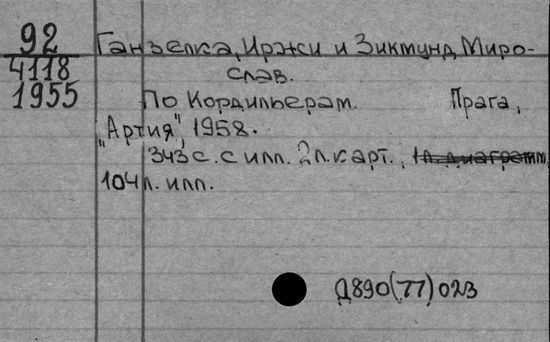 92 Ганзелка, Иржи и Зикмунд, Миро-
4118 слав.
1955 По Кордильерам. Прага,
"Артия", 1958.
343 с. с илл. 2 л. карт., 1 л. диаграмм,
104 л. илл.
Д890(77)023